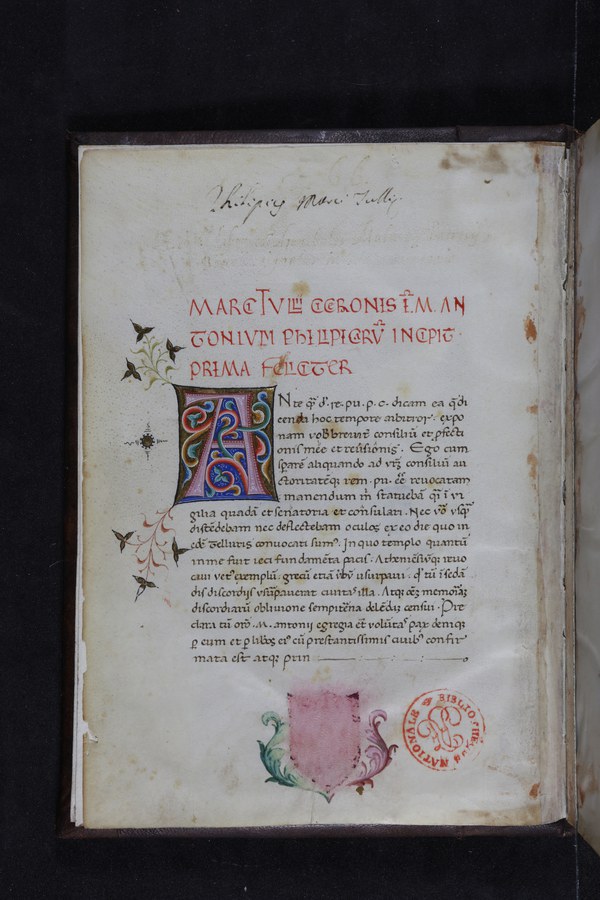 Philipicy Marci Tullij
MARCI TVLII CICERONIS Ī. M. AN
TONIVM PHILIPICARV̄ INCIPIT
PRIMA FELICITER
ANte q̄ d̄. re. pu. p. c. dicam ea q̄ di
cenda hoc tempore arbitror. expo
nam vob breviter consiliū et ꝓfecti
onis meę et reusionis. Ego cum
sꝑarē aliquando ad vr̄m consiliū au
ctoritatēq rem. pu. eē revocatam
manendum m̄ statuebā q̄ i vi
gilia quadā et senatoria et consulari. Nec vō usq̄
discedebam nec deflectebam oculos ex eo die quo in
edē telluris convocati sum. In quo templo quantū
in me fuit ieci fundamēta pacis. Atheniēsiūq
cavi vet exemplū. grecū etiā usurpavi. q̄ tū i sedā
dis discordijs usurpaverat civitas illa. Atq oēz memoriāz
discordiarū oblivione sempitēna delēdā censui. Pre
clara tū orō. M. antonij egregia etē volūtas pax deniq
ꝑ eum et ꝑ libos eī cū prestantissimis civib confir
mata est atq prin
BIBLIOTHEQUE NATIONALE